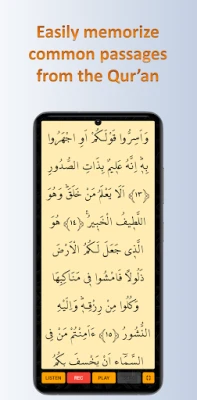 Easily memorize
common passages
from the Qur'an
وَاَسِرُّوا قَوْلَكُمْ اَوِ اجْهَرُوا
بِهٖ اِنَّهُ عَلِيمٌ بِذَاتِ الصُّدُورِ
﴿١٣﴾ اَلَا يَعْلَمُ مَنْ خَلَقَ وَهُوَ
اللَّطِيفُ الْخَبِيرُ ﴿١٤﴾ هُوَ
الَّذِى جَعَلَ لَكُمُ الْاَرْضَ
ذَلُولًا فَامْشُوا فِى مَنَاكِبِهَا
وَكُلُوا مِنْ رِزْقِهٖ وَاِلَيْهِ
النُّشُورُ ﴿١٥﴾ ءَاَمِنْتُمْ مَنْ فِى
السَّمَاءِ اَنْ يَخْسِفَ بِكُمُ
LISTEN REC PLAY